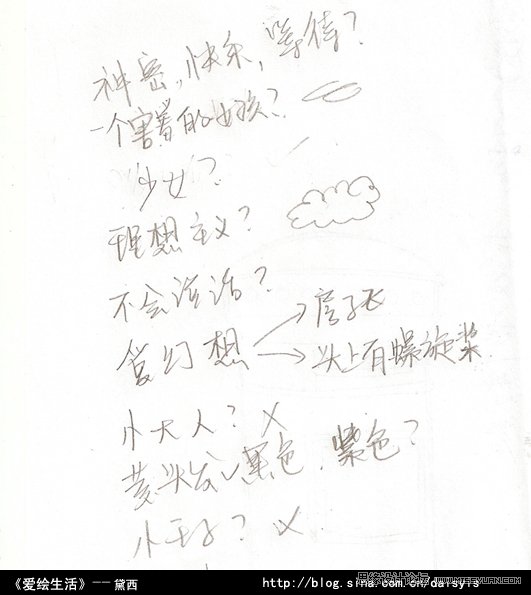 神密,快乐,等待?
一个害羞的女孩?
少女?
理想主义?
不会说话?
爱幻想 → 房子飞
→ 头上有螺旋桨
小大人? ×
黄头发 黑色.紫色?
小王子? ×
《爱绘生活》—— 黛西
http://blog.sina.com.cn/daisyis
思缘设计论坛 WWW.MISSYUAN.COM